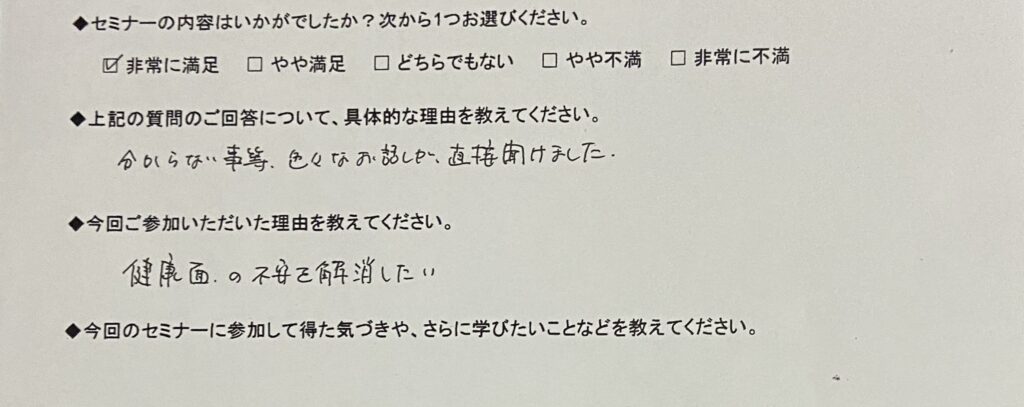 ◆セミナーの内容はいかがでしたか？次から1つお選びください。
☑ 非常に満足 □ やや満足 □ どちらでもない □ やや不満 □ 非常に不満
◆上記の質問のご回答について、具体的な理由を教えてください。
分からない事等、色々なお話しが、直接聞けました.
◆今回ご参加いただいた理由を教えてください。
健康面.の不安を解消したい
◆今回のセミナーに参加して得た気づきや、さらに学びたいことなどを教えてください。